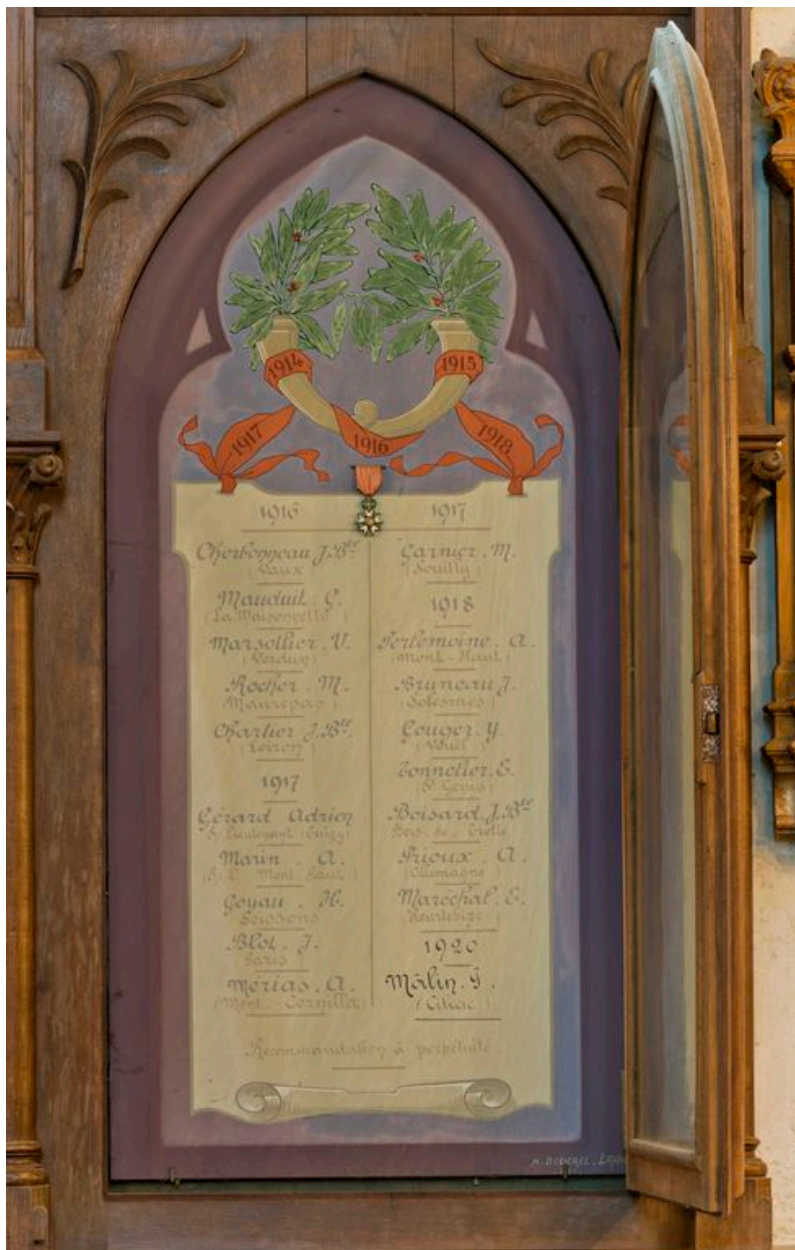 1914
1915
1917
1916
1918
1916
Cherbonneau J.Bte
(Vaux)
Mauduit. G.
(La Maisonnette)
Marsollier. V.
(Verdun)
Rocher. M.
(Maurepas)
Chartier J.Bte
(Loiron)
1917
Gérard Adrien
S/ Lieutenant
Marin. A.
(S. L. Mont Haut)
Goyau. H.
Soissons
Blot. J.
Paris
Mérias. A.
(Mont. Cornillet)
1917
Garnier. M.
(Souilly)
1918
Perlemoine. A.
(Mont-Haut)
Bruneau J.
(Solesmes)
Gouger. Y.
Tonnelier. E.
(St Genis)
Boisard. J.Bte
Prioux. A.
(Allemagne)
Maréchal. E.
(Heurtebize)
1920
Mâlin. J.
Recommandation à perpétuité.